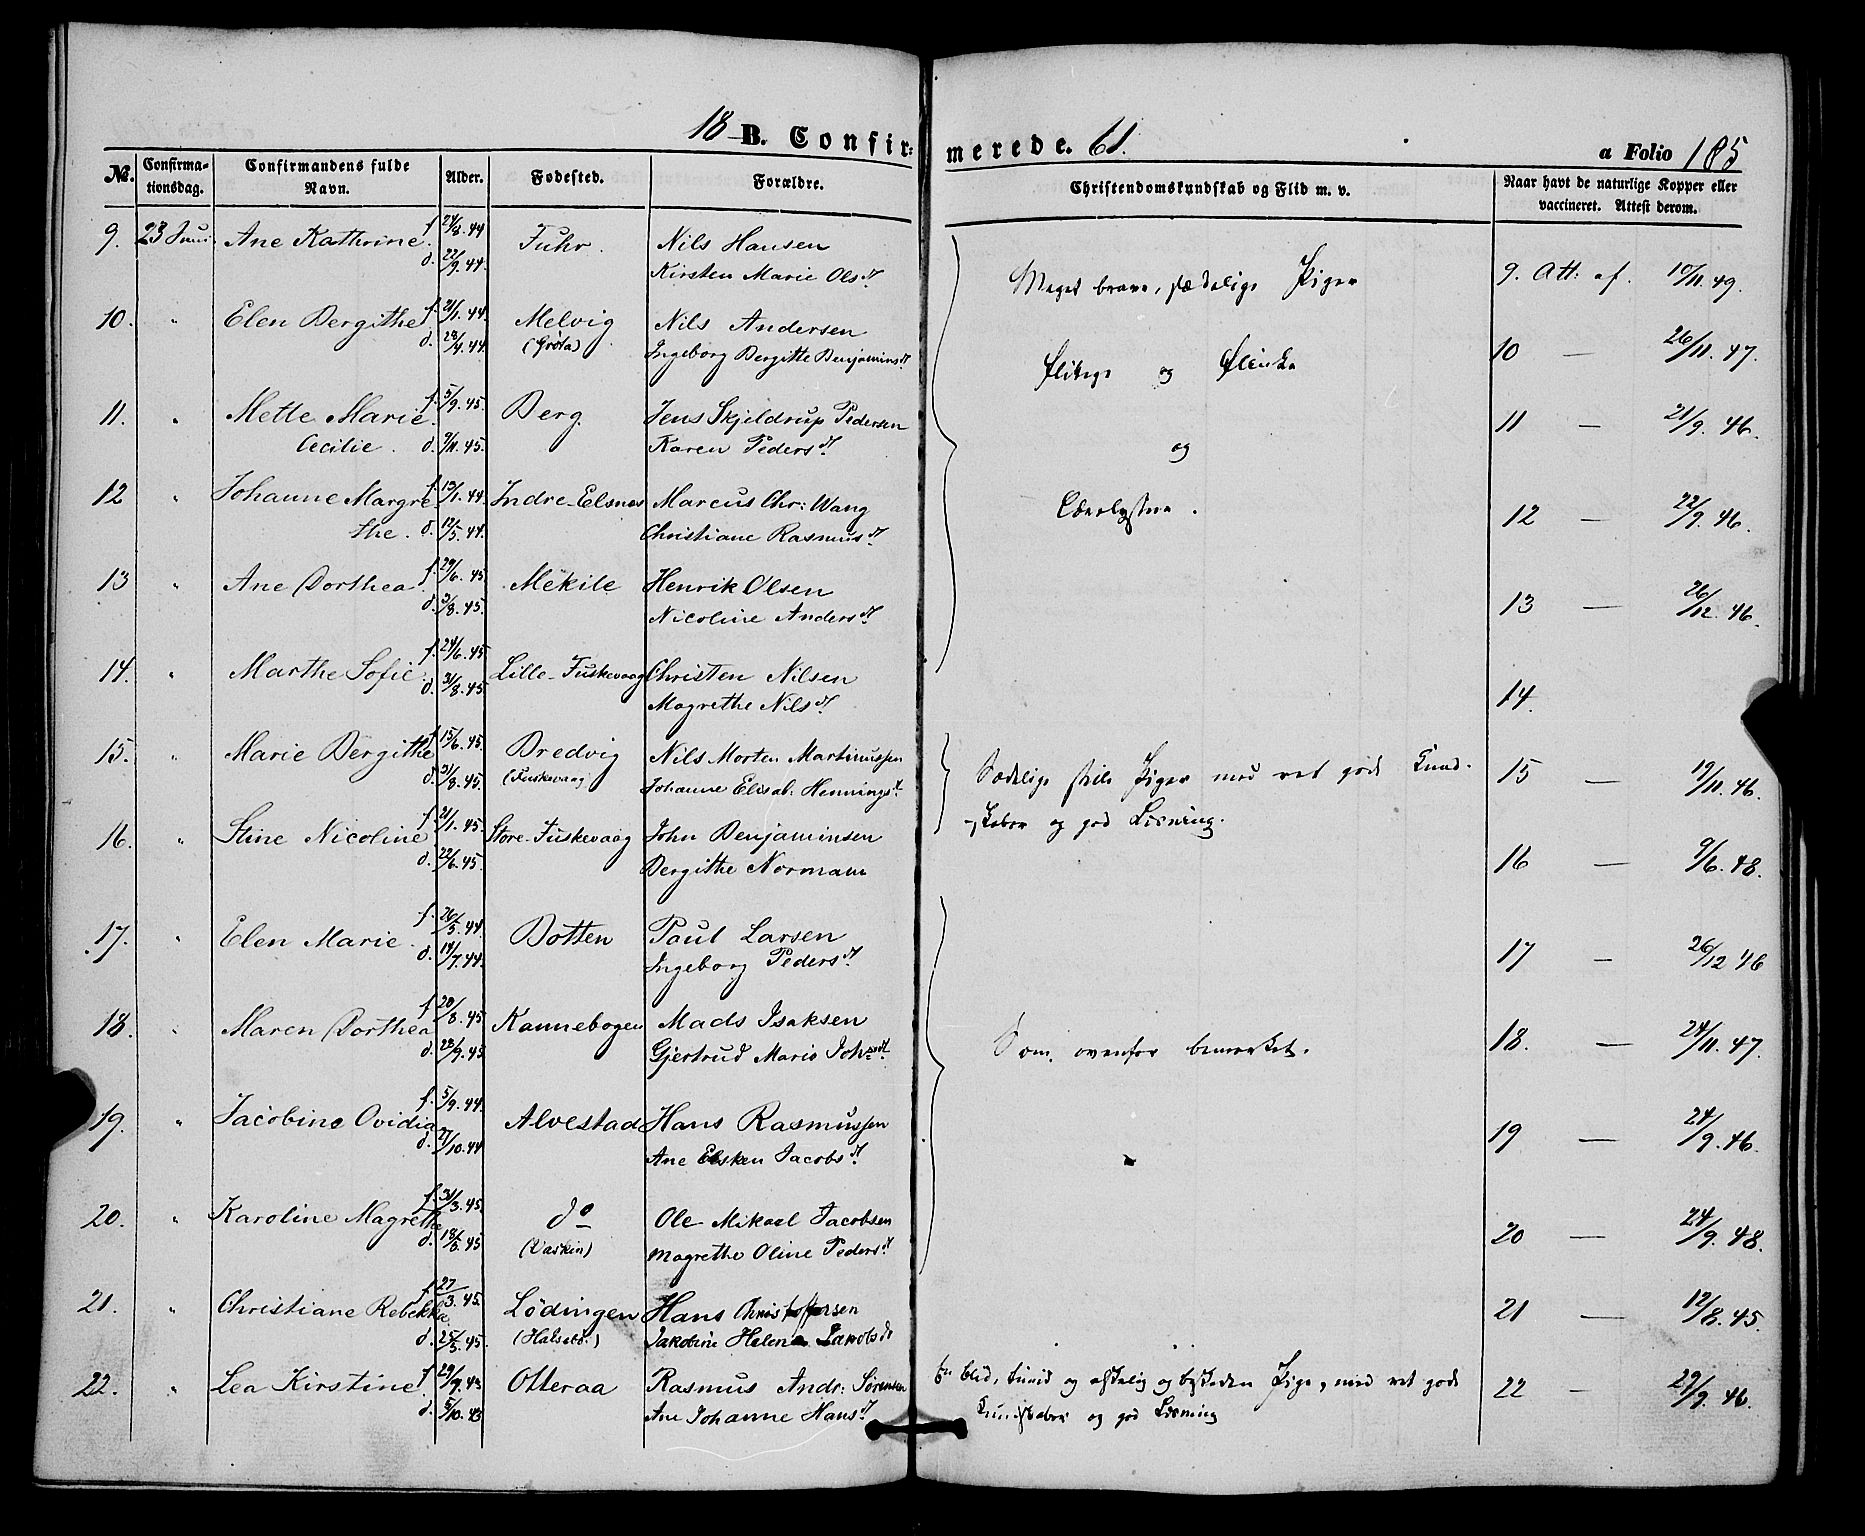 18 B. Confirmerede. 61. a Folio 185
No. Confirmationsdag. Confirmandens fulde Navn. Alder. Fødested. Forældre. Christendomskundskab og Flid m. v. Naar havt de naturlige Kopper eller vaccineret. Attest derom.
9. 23 Juni. Ane Kathrine. f. 24/8. 44 Fuhr. Nils Hansen
d. 22/9. 44. Kirsten Marie Olsdt. Meget brave, sædelige Piger 9. Att: af. 10/11. 49.
10. " Elen Bergithe f. 21/1. 44. Melvig Nils Andersen
d. 28/4. 44. (Grøta) Ingeborg Bergitte Benjaminsdt. flittige og flinke 10 — 26/11. 47.
11. " Mette Marie f. 5/9. 45. Berg. Jens Skjeldrup Pedersen
Cecilie. d. 9/11. 45. Karen Pedersdt. og 11 — 21/9. 46.
12 " Johanne Margre- f. 13/1. 44. Indre-Elsnes Marcus Chr: Wang
the. d. 12/5. 44. Christiane Rasmusdt. Lærelystne. 12 — 22/9. 46.
13 " Ane Dorthea f. 29/6. 45. Mekile Henrik Olsen
d. 3/8. 45. Nicoline Andersdt. 13 — 26/12. 46.
14. " Marthe Sofie f. 24/6. 45. Lille-Fuskevaag Christen Nilsen
d. 31/8. 45. Magrethe Nilsdt. 14.
15. " Marie Bergithe f. 15/6. 45. Bredvig Nils Morten Martinussen
d. 31/8. 45. (Fuskevaag) Johanne Elisab: Henningsdt. Sædelige stille Piger med ret gode Kund- 15 — 19/11. 46.
skaber og god Læsning.
16. " Stine Nicoline f. 21/1. 45. Store-Fuskevaag John Benjaminsen
d. 22/6. 45. Bergithe Normann 16 — 9/6. 48.
17. " Elen Marie. f. 26/5. 44. Botten Paul Larsen
d. 14/7. 44. Ingeborg Pedersdt. 17 — 26/12 46
18. " Maren Dorthea f. 20/8. 45 Kannebogen Mads Isaksen
d. 28/9. 45 Gjertrud Maris Johsdt. Som ovenfor bemærket. 18. — 24/11. 47.
19. " Jacobine Ovidia f. 5/9. 44. Alvestad Hans Rasmussen
d. 27/10. 44 Ane Elsken Jacobsdt. 19 — 24/9. 46.
20. " Karoline Magrethe f. 31/3. 45. do Ole Mikael Jacobsen
d. 18/5. 45 (Vaskin) Magrethe Oline Pedersdt. 20 — 24/9. 48.
21. " Christiane Rebekka f. 27/3. 45. Lödingen Hans Christoffersen
d. 25/5. 45. Jakobine Helena Jakobsdt 21 — 12/8. 45.
22. " Lea Kirstine f. 29/9. 43 Otteraa Rasmus Andr: Sørensen
d. 5/10. 43 Ane Johanne Hansdt. En blid, og elskelig og beskeden Pige, med ret gode 22 — 29/9. 46.
Kundskaber og god Læsning